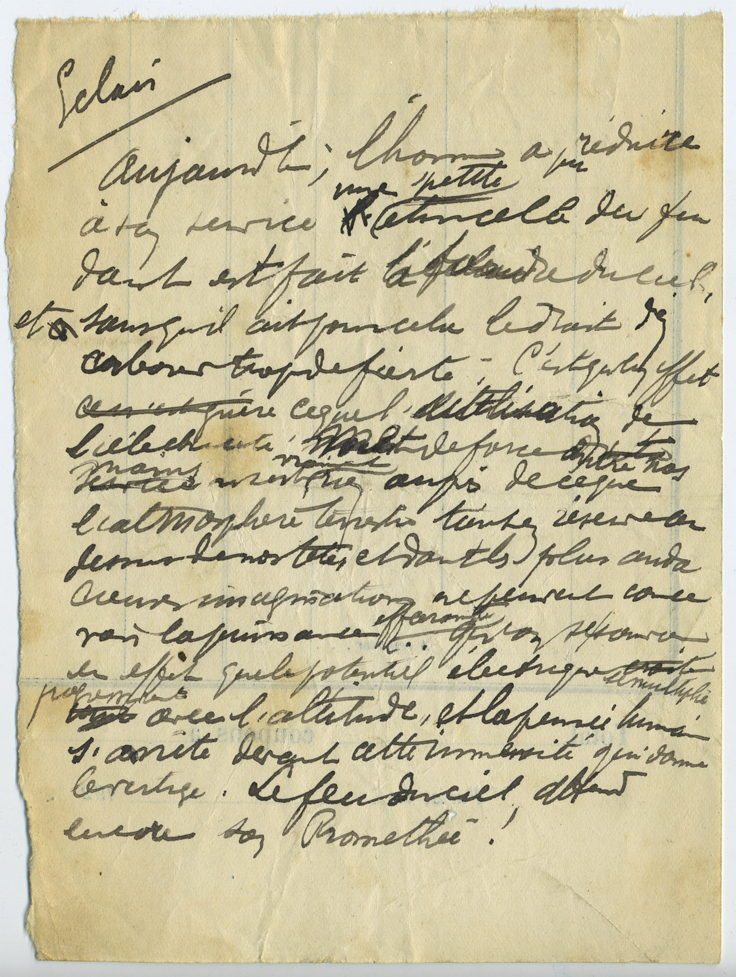 Eclair
Aujourd'hui, l'homme a pu réduire
à son service une petite étincelle du feu
dont est fait la foudre du ciel,
et sans qu'il ait pour cela le droit d'en
arborer trop de fierté ; C'est qu'en effet
ce n'est guère ce que l'utilisation de
l'électricité de force entre nos
mains vient auprès de ce que
l'atmosphère terrestre tient en réserve au
dessus de nos têtes, et dont les plus auda
cieuses imaginations ne peuvent conce
voir la puissance effarante. Qu'on se souvienne
en effet que le potentiel électrique croit et multiplie
progressivement avec l'altitude, et la pensée humaine
s'arrête devant cette immensité qui donne
le vertige. Le feu du ciel attend
encore son Promethée !